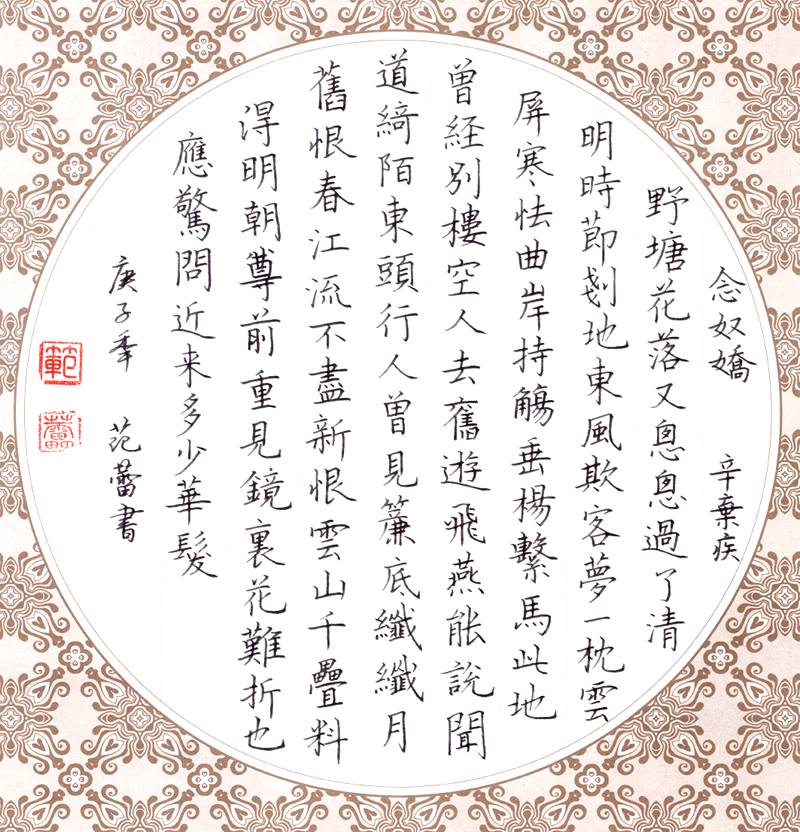 念奴嬌 辛棄疾
野塘花落又恖恖過了清
明時節剗地東風欺客夢一枕雲
屏寒怯曲岸持觴垂楊繫馬此地
曾経別樓空人去舊遊飛燕能說聞
道綺陌東頭行人曾見簾底纖纖月
舊恨春江流不盡新恨雲山千疊料
淂明朝尊前重見鏡裏花難折也
應驚問近来多少華髮
庚子季 范蕾書
範
蕾